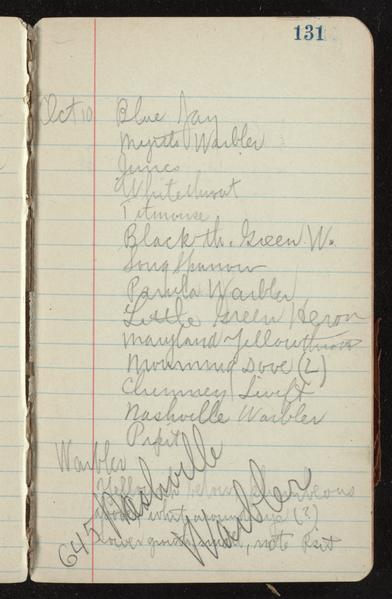 131
Oct 10 Blue Jay
Myrtle Warbler
Junco
Whitethroat
Titmouse
Black-th. Green W.
Song Sparrow
Parula Warbler
Little Green Heron
Maryland Yellowthroat
Mourning Dove (2)
Chimney Swift
Nashville Warbler
Pipit
Warbler
below
white around eye (?)
, note Psit
645 Nashville
Warbler